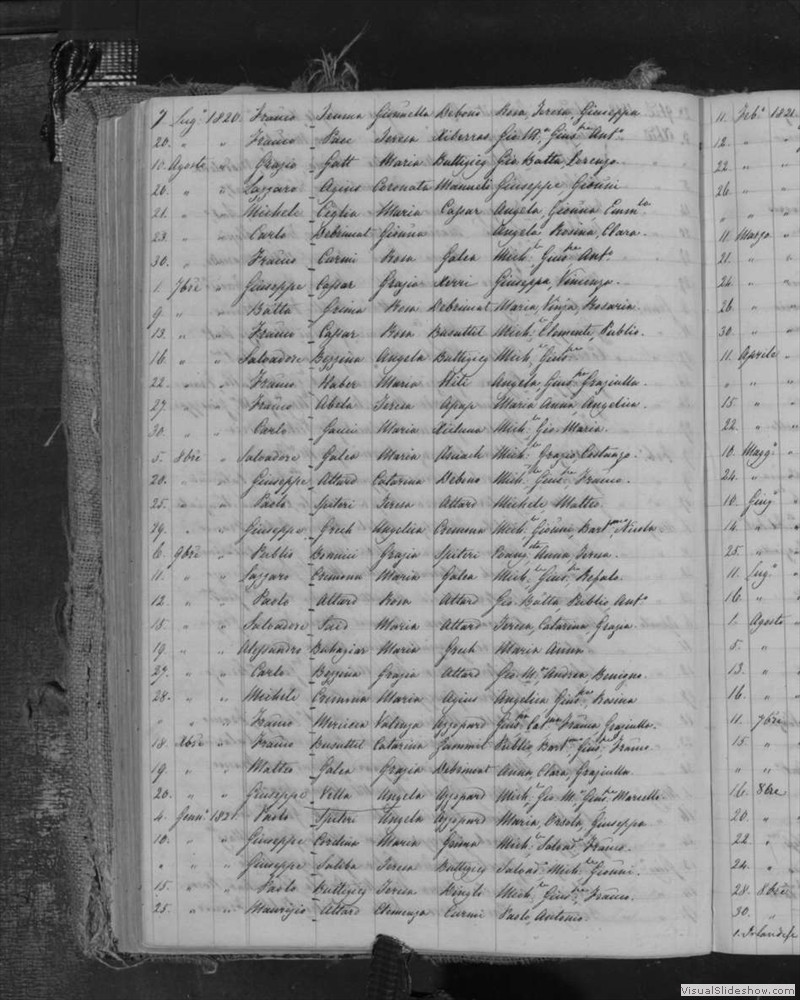 7 Lug.o 1820 Franco Zemma Giovaella Debono Rosa, Teresa, Giuseppa
20. " " Franco Pace Teresa Xiberras Gio M.a Gius.e Ant.o
10. Agosto " Orazio Gatt Maria Buttigieg Gio Batta Lorenzo.
20. " " Lazzaro Agius Coronata Mamieli Giuseppe Gionni
21. " " Michele Ciglia Maria Cassar Angela, Gionna Emm.la
23. " " Carlo Debrincat Gionna Angela Rosina, Clara.
30. " " Franco Curmi Rosa Galea Mich.le Gius.e Ant.o
1. 7bre " Giuseppe Cassar Grazia Xerri Giuseppa, Vincenza.
9. " " Batta Grima Rosa Debrincat Maria, Vinza, Rosaria.
13. " " Franco Cassar Rosa Busuttil Mich.e Clemente, Publio.
16. " " Salvadore Bezzina Angela Buttigieg Mich.e Gius.e
22. " " Franco Haber Maria Angela, Gius.a Graziulla.
27. " " Franco Abela Teresa Apap Maria Anna, Angelica.
30. " " Carlo Gauci Maria Xicluna Mich.e Gio Maria.
5. 8bre " Salvadore Galea Maria Mich.le Grazio Costanzo.
20. " " Giuseppe Attard Catarina Debono Mich.le Gius.e Franco.
25. " " Paolo Spiteri Teresa Attard Michele Matteo
29. " " Giuseppe Grech Angelica Cremona Mich.e Gionni, Bart.meo Nicola
6. 9bre " Publio Grazia Spiteri Anna, Teresa.
11. " " Lazzaro Cremona Maria Galea Mich.le Gius.e Rafale
12. " " Paolo Attard Rosa Attard Gio Batta, Publio, Ant.o
15. " " Salvadore Said Maria Attard Teresa, Catarina, Grazia.
19. " " Alessandro Buhagiar Maria Grech Maria Anna
27. " " Carlo Bezzina Grazia Attard Gio M.a Andrea, Benigno.
28. " " Michele Cremona Maria Agius Angelica Gius.a Rosina
" " " Franco Mercieca Valenza Azzopard Gius.a Cat.na Franca Graziulla.
18. Xbre " Franco Busuttil Catarina Gammel Publio, Bart.meo Gius.e Franco
19. " " Matteo Galea Grazia Debrincat Anna, Clara, Graziulla.
20. " " Giuseppe Vella Angela Azzopard Mich.e Gio M.a Gius.e Marcello.
4. Genn.o 1821. Paolo Spiteri Angela Azzopard Maria, Orsola, Giuseppa
10. " " Giuseppe Cordina Maria Grima Mich.e Salvad.e Franco.
" " " Giuseppe Saliba Teresa Buttigieg Salvad.e Mich.le Gionni.
15. " " Paolo Buttigieg Teresa Dingli Mich.le Gius.e Franco.
25. " " Maurizio Attard Clemenza Curmi Paolo, Antonio.
11. Feb.o 1821.
12. "
22. "
26. "
" "
11. Marzo
21. "
24. "
26. "
30. "
11. Aprile
" "
15. "
22. "
10. Magg.o
24. "
10. Giug.o
14. "
25. "
11. Lug.o
16. "
1. Agosto
5. "
13. "
16. "
11. 7bre
15. "
" "
16. 8bre
20. "
22. "
24. "
28. 8bre
30. "
VisualSlideshow.com